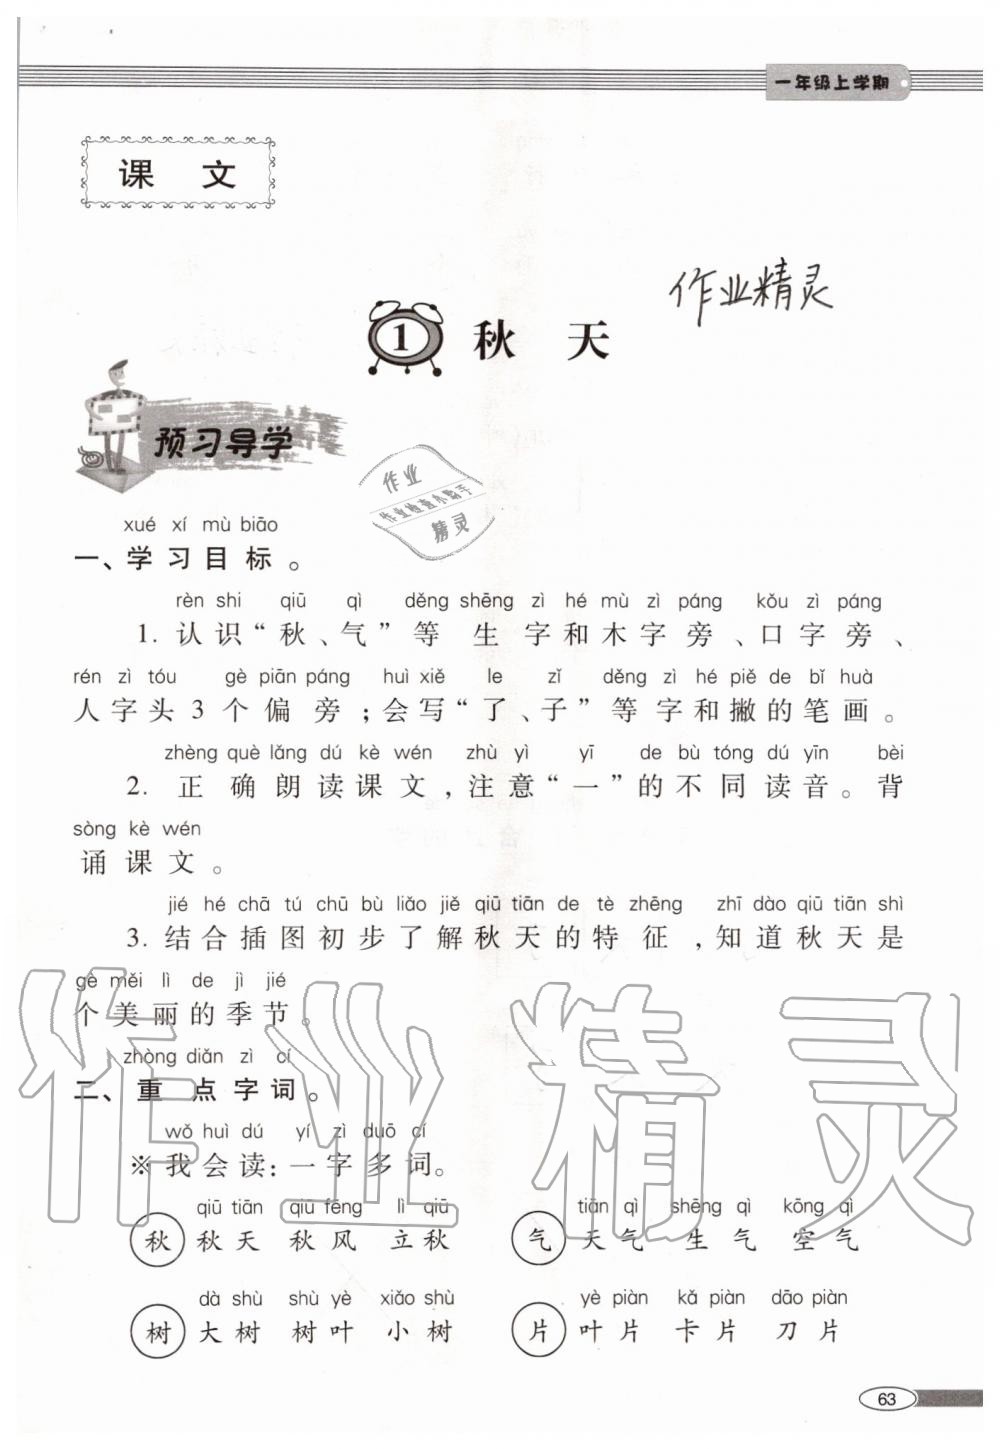 一年级上学期
课 文
作业精灵
1 秋 天
预习导学
作业
作业检查小助手
精灵
xué xí mù biāo
一、学习目标。
rèn shi qiū qì děng shēng zì hé mù zì páng kǒu zì páng
1. 认识“秋、气”等生字和木字旁、口字旁、
rén zì tóu gè piān páng huì xiě le zǐ děng zì hé piě de bǐ huà
人字头3个偏旁;会写“了、子”等字和撇的笔画。
zhèng què lǎng dú kè wén zhù yì yī de bù tóng dú yīn bèi
2. 正确朗读课文,注意“一”的不同读音。背
sòng kè wén
诵课文。
jié hé chā tú chū bù liǎo jiě qiū tiān de tè zhēng zhī dào qiū tiān shì
3. 结合插图初步了解秋天的特征,知道秋天是
gè měi lì de jì jié
个美丽的季节。
zhòng diǎn zì cí
二、重点字词。
wǒ huì dú yí zì duō cí
※我会读:一字多词。
qiū tiān qiū fēng lì qiū tiān qì shēng qì kōng qì
秋 秋天 秋风 立秋 气 天气 生气 空气
dà shù shù yè xiǎo shù yè piàn kǎ piàn dāo piàn
树 大树 树叶 小树 片 叶片 卡片 刀片
作业精灵
63